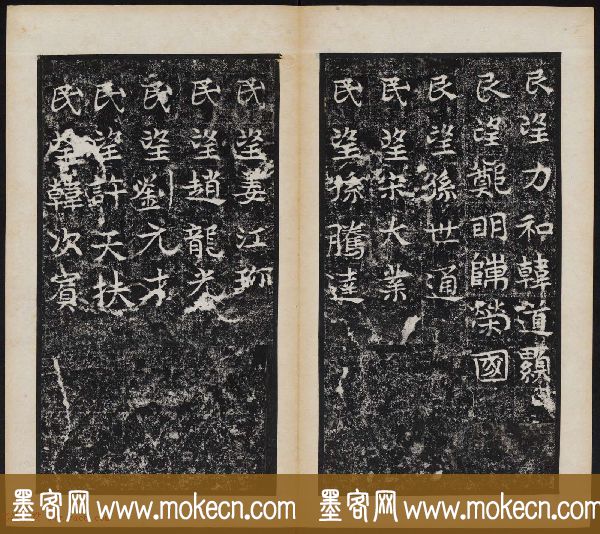 民望力和韓道顯
民望鄭明陳榮國
民望孫世通
民望宋大業
民望孫騰達
民望姜江珎
民望趙龍光
民望劉元才
民望許天扶
民望韓次賓
墨客网 www.mokecn.com 墨客网 www.mokecn.com